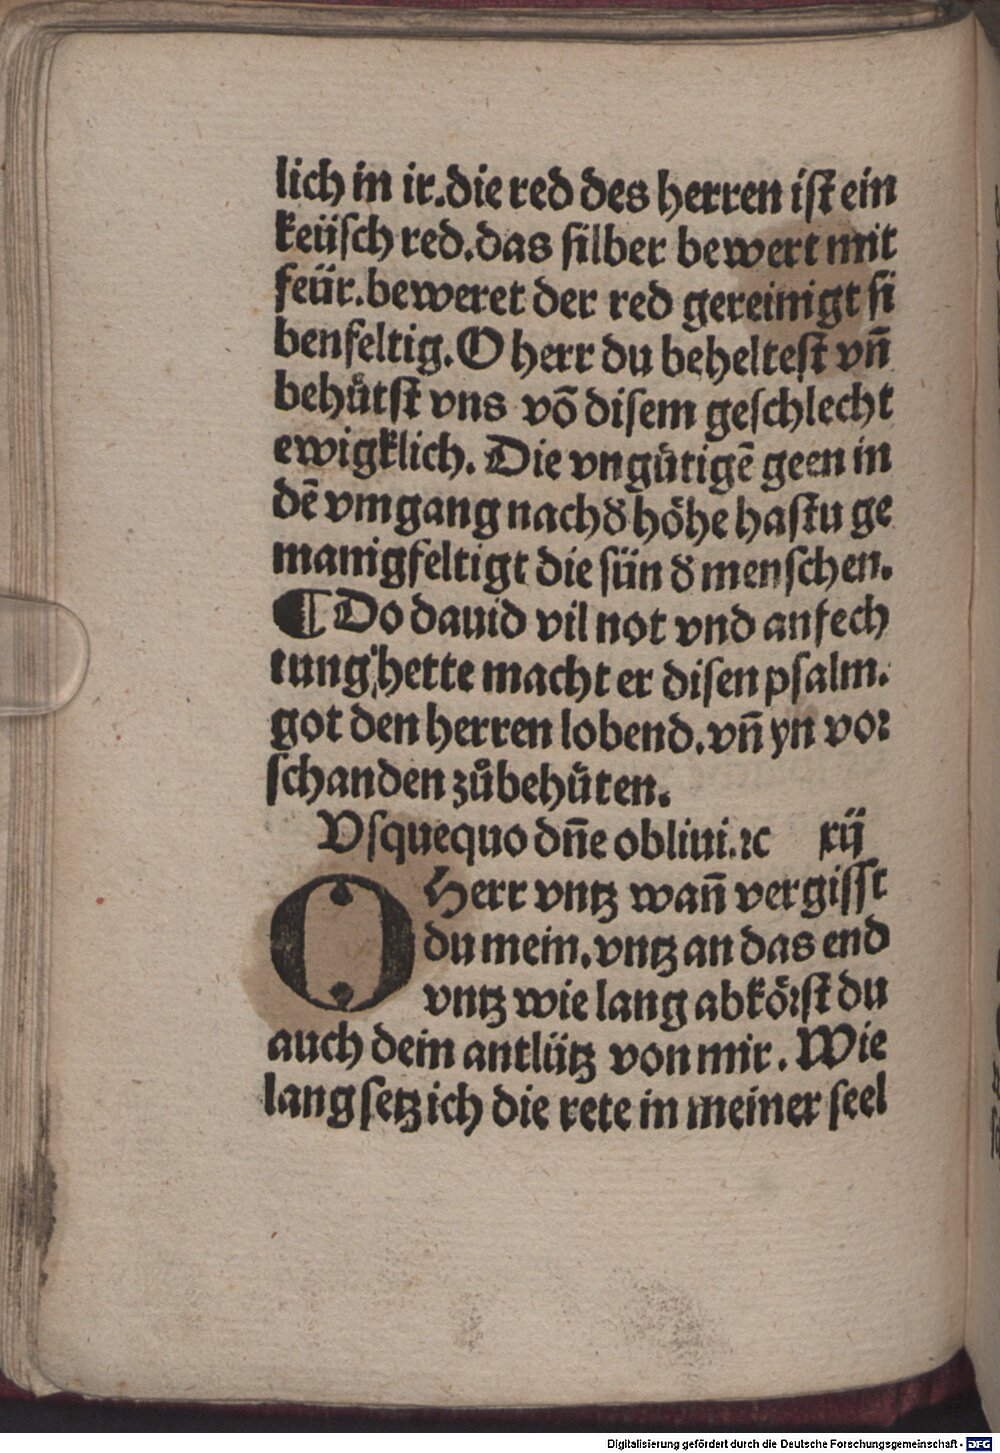 lich in ir.die red des herren iſt ein
keüſch red.das ſilber bewert mit
feür.beweret der red gereinigt ſi
benfeltig.O herr du behelteſt vñ
behuͤtſt vns võ diſem geſchlecht
ewigklich. Die vnguͤtigẽ geen in
dẽ vmgang nach đ hoͤhe haſtu ge
manigfeltigt die ſün đ menſchen.
¶ Do dauid vil not vnd anfech
tung hette macht er diſen pſalm.
got den herren lobend.vñ yn voꝛ
ſchanden zůbehuͤten.
Vſquequo dñe obliui.ꝛc xij
O Herr vntz wañ vergiſſt
du mein.vntz an das end
vntz wie lang abkoͤꝛſt du
auch dein antlütz von mir. Wie
lang ſetz ich die rete in meiner ſeel
Digitalisierung gefördert durch die Deutsche Forschungsgemeinschaft - DFG